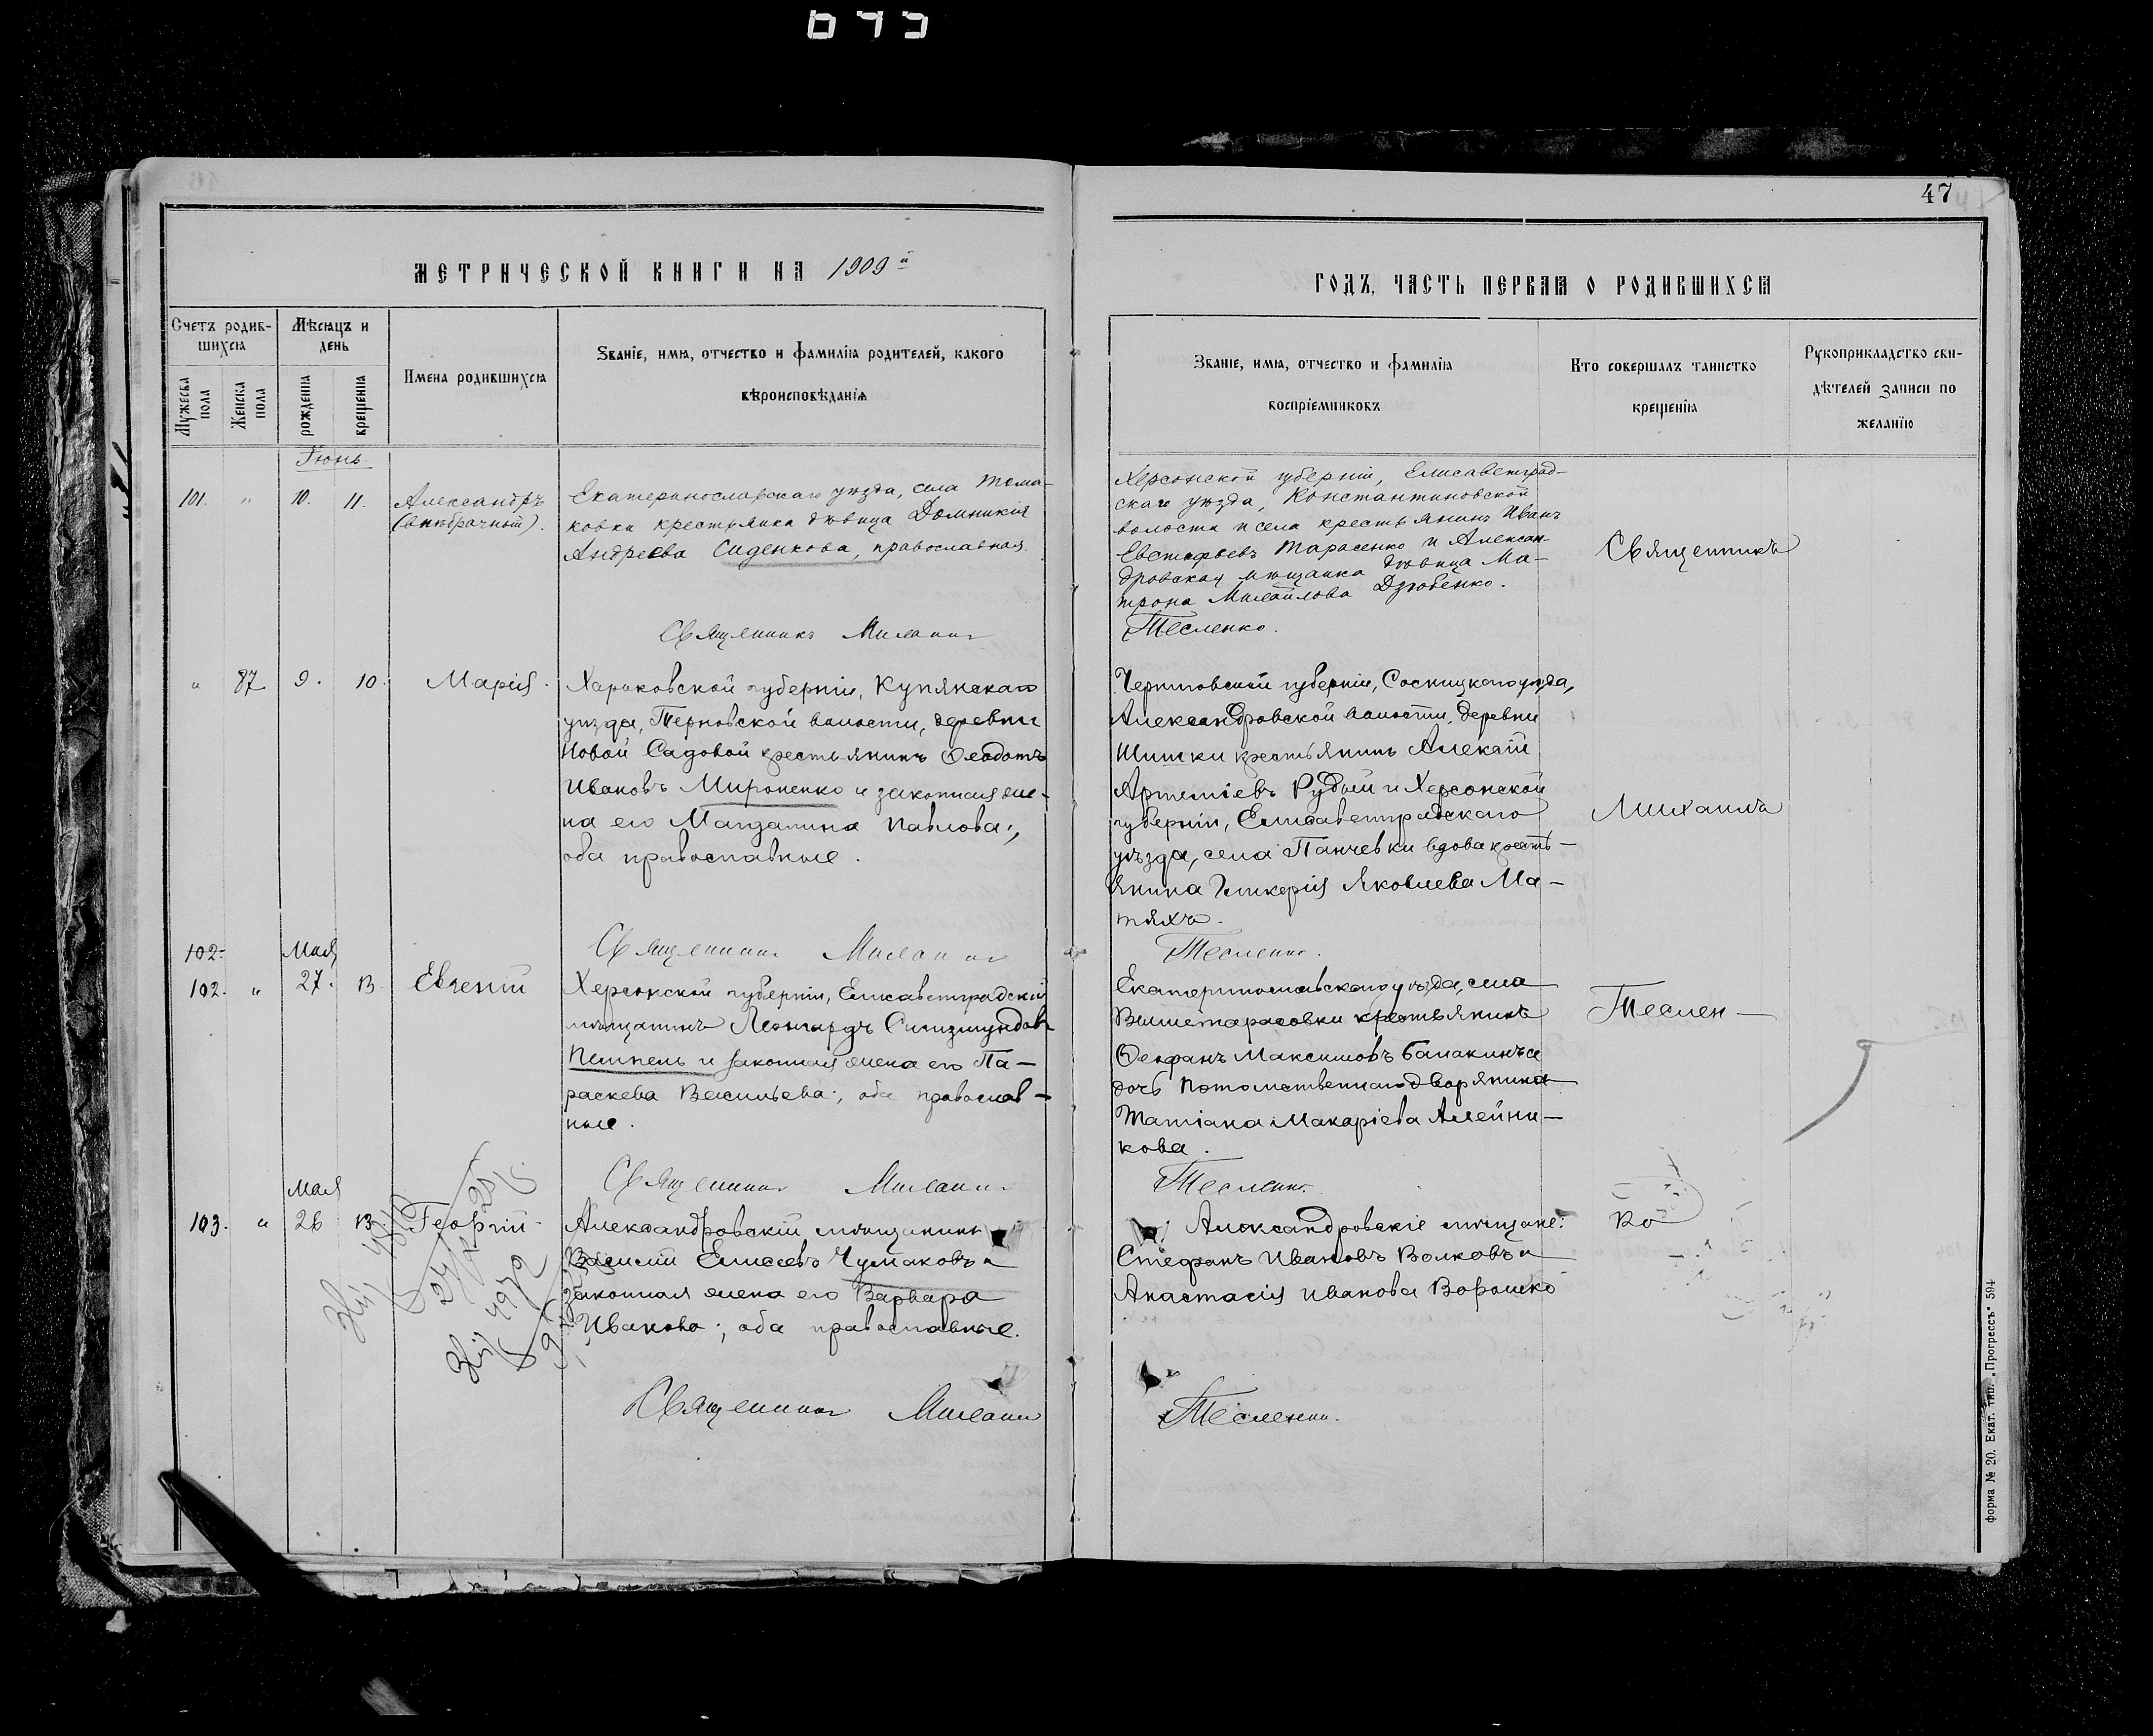 47
МЕТРИЧЕСКОЙ КНИГИ НА 1909й
Счетъ родив-
шихся
Мѣсяцъ и
день
Мужеска
пола
Женска
пола
рожденія
крещенія
Имена родившихся
Званіе, имя, отчество и фамилія родителей, какого
вѣроисповѣданія
Іюнь.
101. " 10. 11. Александръ
(внѣбрачный).
Екатеринославскаго уѣзда, села Тома-
ковки крестьянка дѣвица Домникія
Андреева Сиденкова, православная.
Священникъ Михаилъ
" 87 9. 10. Марія.
Харьковской губерніи, Купянскаго
уѣзда, Терновской волости, деревни
Новой Садовой крестьянинъ Ѳеодотъ
Ивановъ Мироненко и законная же-
на его Магдалина Павлова;
оба православные.
Священникъ Михаилъ
102. Мая
102. " 27. 13. Евгеній
Херсонской губерніи, Елисаветградскій
мѣщанинъ Леонгардъ Сигизмундовъ
и законная жена его Па-
раскева Васильева; оба православ-
ные.
Священникъ Михаилъ
Мая
103. " 26 13. Георгій
Александровскій мѣщанинъ
Василій Елисеевъ Чумаковъ и
законная жена его Варвара
Иванова; оба православные.
Священникъ Михаилъ
ГОДЪ, ЧАСТЬ ПЕРВАЯ О РОДИВШИХСЯ
Званіе, имя, отчество и фамилія
воспріемниковъ
Кто совершалъ таинство
крещенія
Рукоприкладство сви-
дѣтелей записи по
желанію
Херсонской губерніи, Елисаветград-
скаго уѣзда, Константиновской
волости и села крестьянинъ Иванъ
Евстафьевъ Тарасенко и Алексан-
дровская мѣщанка дѣвица Ма-
трона Михайлова Дзюбенко.
Тесленко.
Священникъ
Черниговской губерніи, Сосницкаго уѣзда,
Александровской волости, деревни
Шишки крестьянинъ Алексій
Артеміевъ Рудый и Херсонской
губерніи, Елисаветградскаго
уѣзда, села Панчевки вдова кресть-
янина Гликерія Яковлева Ма-
тяхъ.
Тесленко.
Михаилъ
Екатеринославскаго уѣзда, села
Вышетарасовки крестьянинъ
Ѳеофанъ Максимовъ Балакинъ и
дочь потомственнаго дворянина
Татіана Макаріева Алейни-
кова.
Тесленко.
Теслен-
Александровскіе мѣщане:
Стефанъ Ивановъ Волковъ и
Анастасія Иванова Ворошко
Тесленко.
ко
Форма № 20. Екат. тип. „Прогрессъ" 594